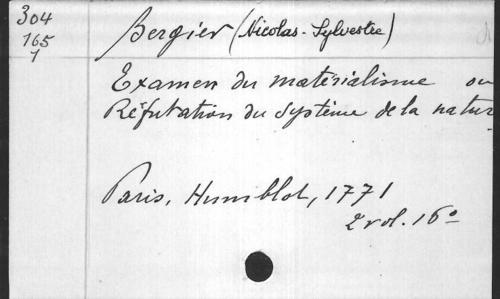 304
165
1
Bergier (Nicolas-Sylvestre)
Examen du matérialisme ou
Réfutation du système de la natur
Paris, Humblot, 1771
2 vol. 16°